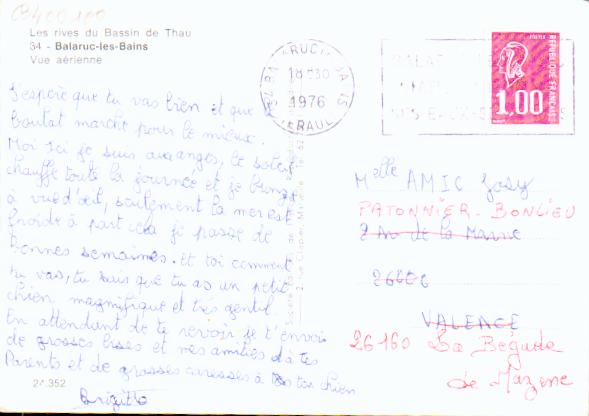 Les rives du Bassin de Thau
34 - Balaruc-les-Bains
Vue aérienne
J'espère que tu vas bien et que le
boulat marche pour le mieux.
Moi ici je suis aux anges, le soleil
chauffe toute la journée et je bronze
à vue d'œil, seulement la mer est
froide à part cela je passe de
bonnes semaines. Et toi comment
tu vas, tu sais que tu as un petit
chien magnifique et très gentil.
En attendant de te revoir je t'envoie
de grosses bises et mes amitiés à tes
Parents et de grosses caresses à ton chien
Brigitte
24.352
18H30
1976
HERAULT
REPUBLIQUE FRANCAISE
POSTES
1,00
Melle AMIC Josy
PATONNIER-BONLIEU
2 Av de la Marne
26000
VALENCE
26160 La Bégude
de Mazenc